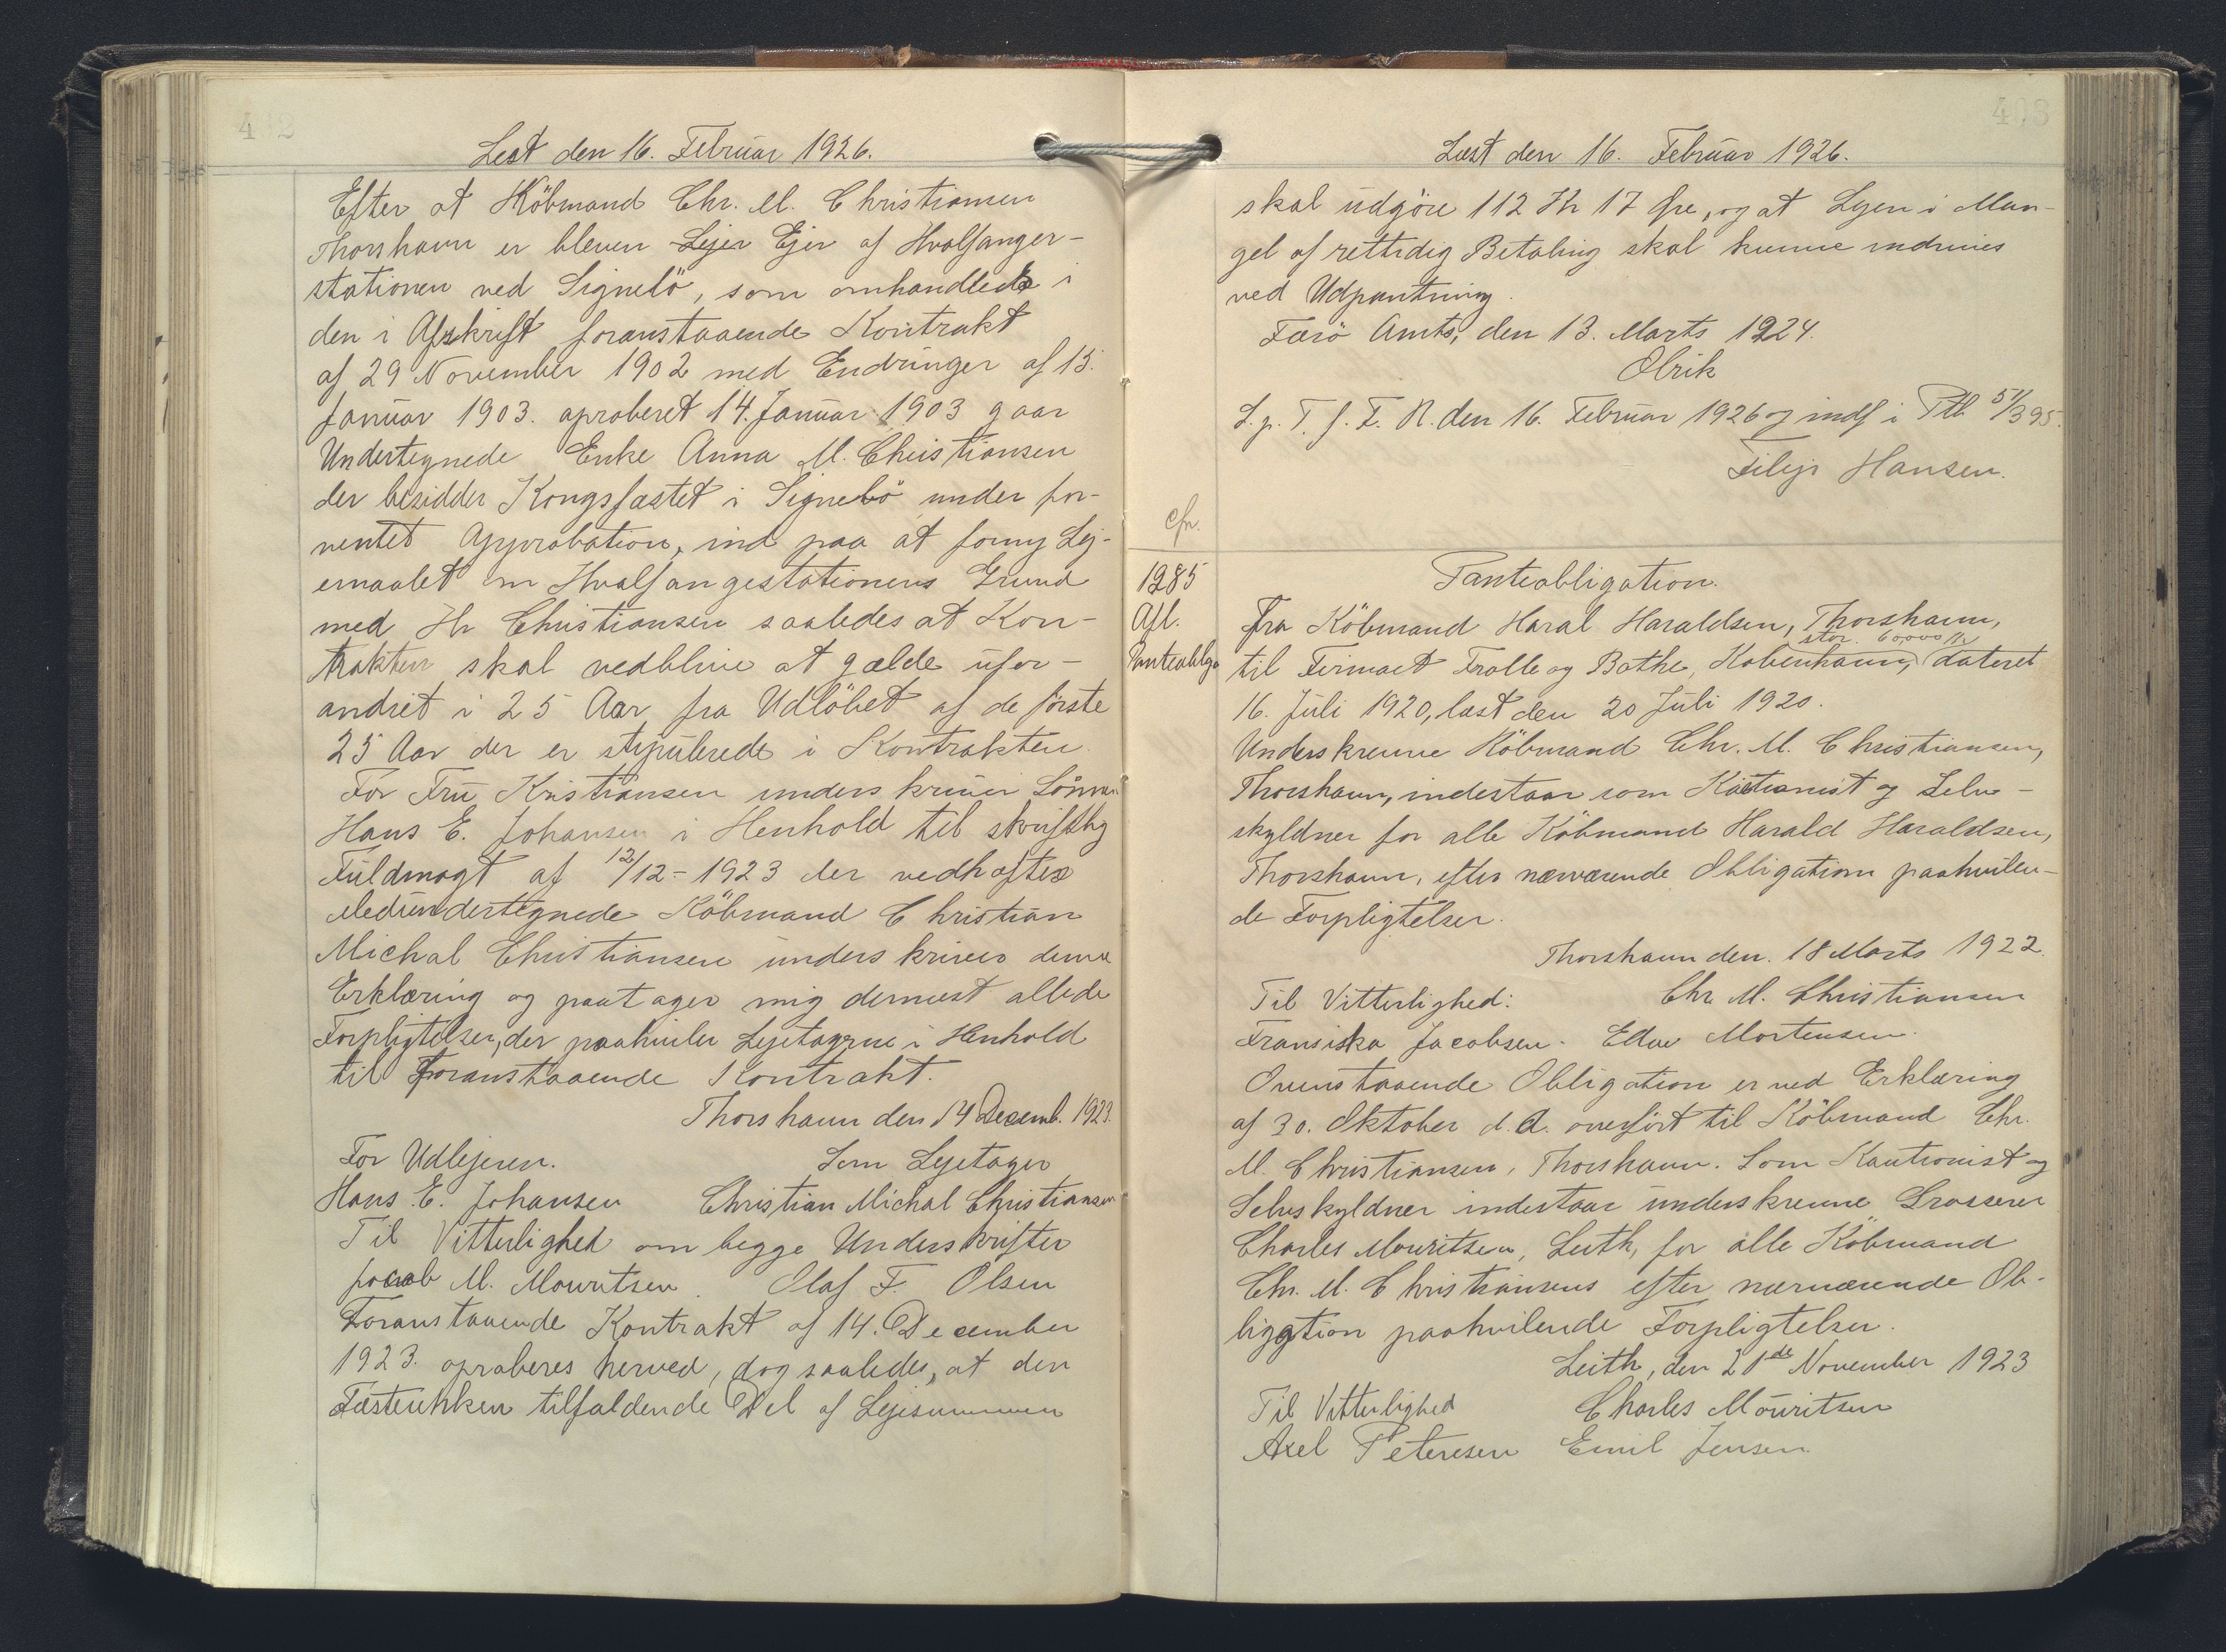 402
Lest den 16. Februar 1926.
Efter at Köbmand Chr. M. Christiansen
Thorshavn er bleven Lejer Ejer af Hvalfanger-
stationen ved Signebö, som omhandlede i
den i Afskrift foranstaaende Kontrakt
af 29 November 1902 med Endringer af 13.
Januar 1903. aproberet 14. Januar 1903 gaar
Undertegnede Enke Anna M. Christiansen
der besidder Kongsfæstet i Signebö under for-
ventet Approbation, ind paa at forny Lej-
emaalet om Hvalfangestationens Grund
med Hr Christiansen saaledes at Kon-
trakten skal vedblive at gælde ufor-
andret i 25 Aar fra Udlöbet af de förste
25 Aar der er stipulerede i Kontrakten.
For Fru Kristiansen underskriver Sönnen
Hans E. Johansen i Henhold til skriftlig
Fuldmagt af 12/12-1923 der vedhæftes
Medundertegnede Köbmand Christian
Michal Christiansen underskriver denne
Erklæring og paatager mig dermest allede
Forpligtelser, der paahviler Lejetagerne i Henhold
til Foranstaaende Kontrakt.
Thorshavn den 14 Decemb. 1923.
For Udlejeren. Som Lejetager
Hans E. Johansen Christian Michal Christiansen
Til Vitterlighed om begge Underskrifter
Jacob M. Mouritsen. Olaf F. Olsen
Foranstaaende Kontrakt af 14. December
1923. aproberes herved, dog saaledes, at den
Fæsteenken tilfaldende Del af Lejesummen
403
Læst den 16. Februar 1926.
skal udgöre 112 Kr 17 Øre, og at Lejen i Man-
gel af rettidig Betaling skal kunne inddrives
ved Udpantning.
Færö Amts, den 13. Marts 1924.
Olrik
L. p. T. f. F. R. den 16. Februar 1926 og indf i Ptb 51/395.
Filip Hansen.
cfr.
1285
Afl.
Panteobliga
Panteobligation.
Fra Köbmand Haral Haraldsen, Thorshavn,
stor 60,000 Kr
til Firmaet Trolle og Bothe, Kobenhavn, dateret
16. Juli 1920, læst den 20 Juli 1920.
Underskrevne Köbmand Chr. M. Christiansen,
Thorshavn, indestaar som Kautionist og Selv-
skyldner for alle Köbmand Harald Haraldsen,
Thorshavn, efter nærværende Obligation paahvilen-
de Forpligtelser.
Thorshavn den. 18 Marts 1922.
Til Vitterlighed: Chr. M. Christiansen
Fransiska Jacobsen. Edw Mortensen.
Ovenstaaende Obligation er ved Erklæring
af 30. Oktober d. A. overfört til Köbmand Chr.
M. Christiansen, Thorshavn. Som Kautionist og
Selvskyldner indestaar underskrevne Grosserer
Charles Mouritsen, Leith, for alle Köbmand
Chr. M. Christiansens efter nærværende Ob-
ligation paahvilende Forpligtelser.
Leith, den 21de November 1923
Til Vitterlighed Charles Mouritsen
Axel Peteresen Emil Jensen.